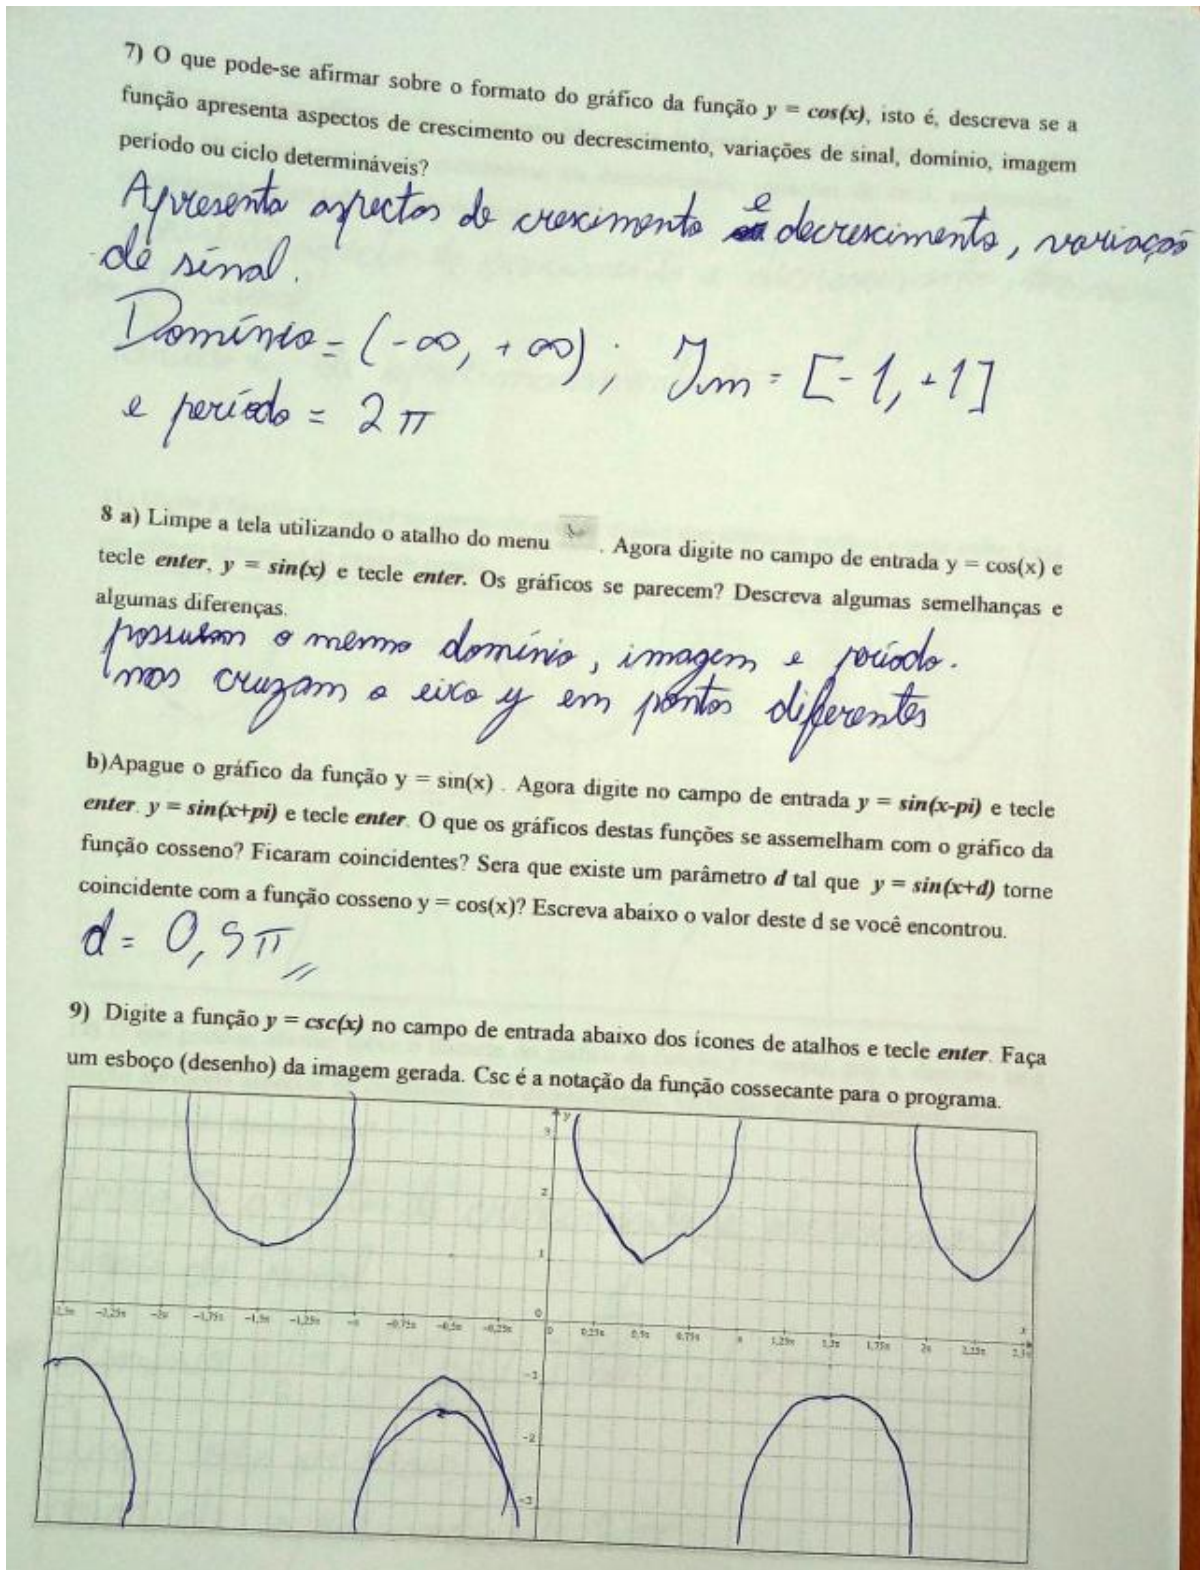 7) O que pode-se afirmar sobre o formato do gráfico da função y = cos(x), isto é, descreva se a
função apresenta aspectos de crescimento ou decrescimento, variações de sinal, domínio, imagem
período ou ciclo determináveis?
Apresenta aspectos de crescimento e decrescimento, variação
de sinal.
Domínio = (-∞, +∞); Im = [-1, +1]
e período = 2π
8 a) Limpe a tela utilizando o atalho do menu . Agora digite no campo de entrada y = cos(x) e
tecle enter, y = sin(x) e tecle enter. Os gráficos se parecem? Descreva algumas semelhanças e
algumas diferenças.
possuem o mesmo domínio, imagem e período.
mas cruzam o eixo y em pontos diferentes
b)Apague o gráfico da função y = sin(x) . Agora digite no campo de entrada y = sin(x-pi) e tecle
enter. y = sin(x+pi) e tecle enter. O que os gráficos destas funções se assemelham com o gráfico da
função cosseno? Ficaram coincidentes? Sera que existe um parâmetro d tal que y = sin(x+d) torne
coincidente com a função cosseno y = cos(x)? Escreva abaixo o valor deste d se você encontrou.
d = 0,5π
9) Digite a função y = csc(x) no campo de entrada abaixo dos ícones de atalhos e tecle enter. Faça
um esboço (desenho) da imagem gerada. Csc é a notação da função cossecante para o programa.
y
3
2
1
0
-2,25π -2π -1,75π -1,5π -1,25π -π -0,75π -0,5π -0,25π 0 0,25π 0,5π 0,75π π 1,25π 1,5π 1,75π 2π 2,25π x
-1
-2
-3